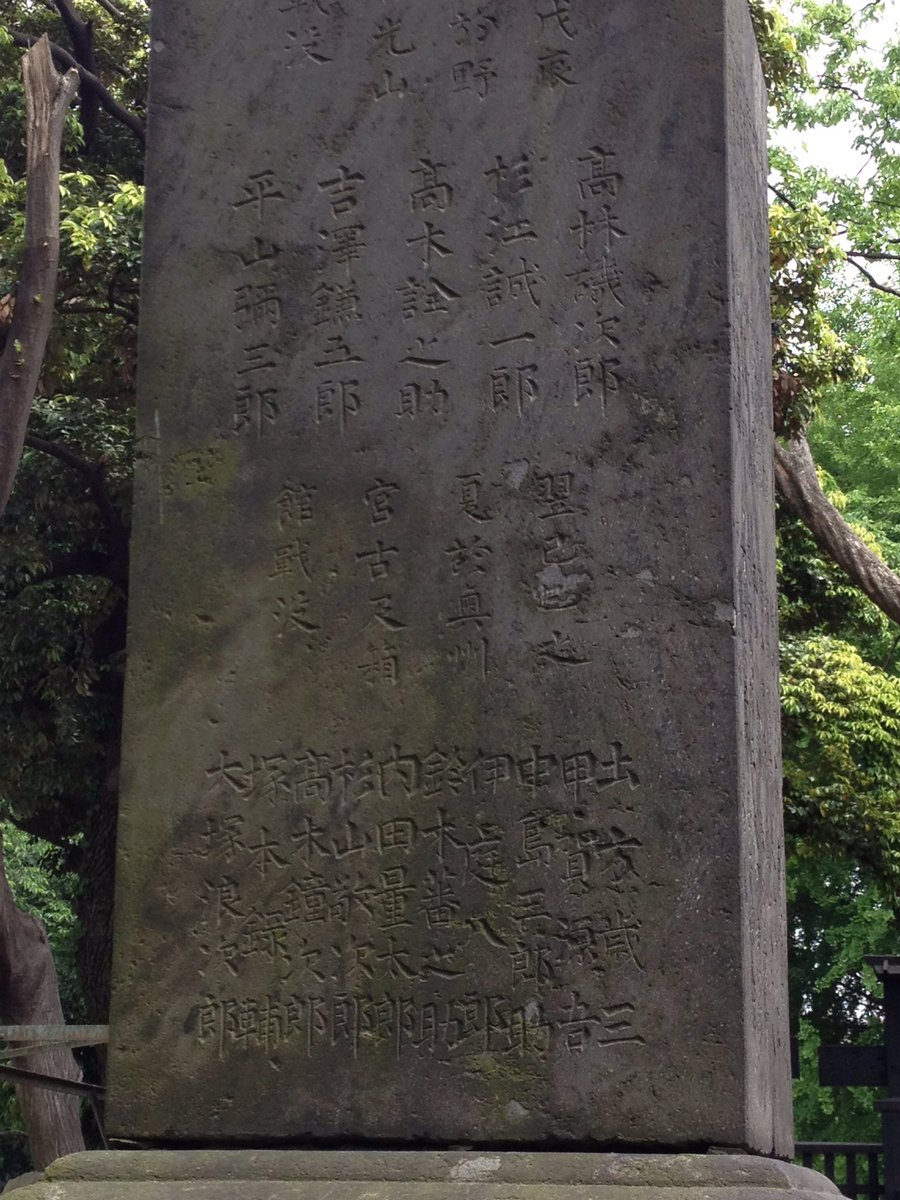 戊辰
於野
光山
戰沒
髙林磯次郎
杉江誠一郎
髙木詮之助
吉澤鎌五郎
平山彌三郎
翌己巳之
夏於奥州
宮古及箱
館戰沒
土方歳三
甲賀源吉
中島三郎助
伊庭八郎
鈴木蕃之助
内田量太郎
杉山敬次郎
髙木鐘次郎
塚本録輔
大塚浪次郎